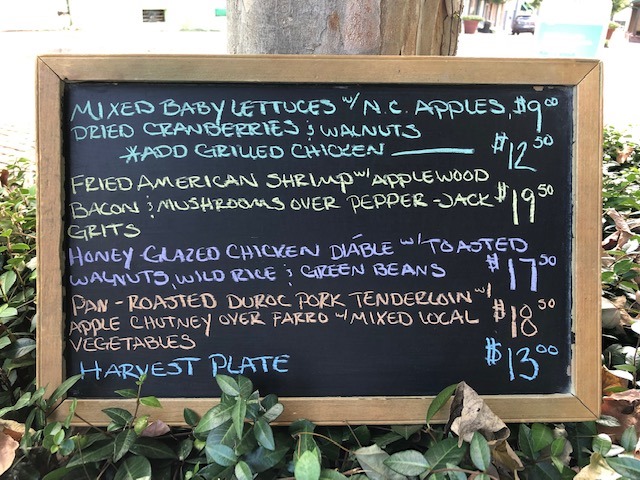 MIXED BABY LETTUCES w/ N.C. APPLES, $9.00
DRIED CRANBERRIES & WALNUTS
*ADD GRILLED CHICKEN — $12.50
FRIED AMERICAN SHRIMP w/ APPLEWOOD
BACON & MUSHROOMS OVER PEPPER-JACK $19.50
GRITS
HONEY GLAZED CHICKEN DIÁBLE w/ TOASTED
WALNUTS, WILD RICE & GREEN BEANS $17.50
PAN-ROASTED DUROC PORK TENDERLOIN w/
APPLE CHUTNEY OVER FARRO w/ MIXED LOCAL $18.50
VEGETABLES
HARVEST PLATE $13.00